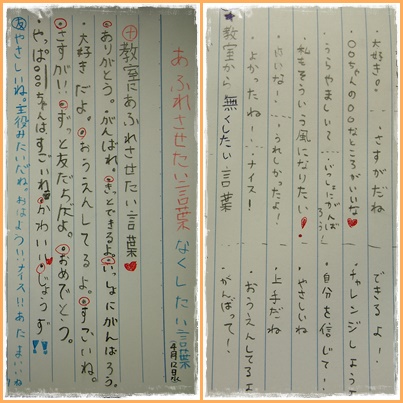 あふれさせたい言葉 なくしたい言葉
4月12日
㊉教室にあふれさせたい言葉
ありがとう。がんばれ。きっとできるよ。いっしょにがんばろう。
・大好きだよ。おうえんしてるよ。すごいね。
さすが!!ずっと友だちだよ。おめでとう。
やっぱ○○ちゃんはすごいね かわいい じょうず!!
やさしいね。主役みたいだね。おはよう!!ナイス!!あたまいいね
・大好き○ さすがだね できるよ!
・○○ちゃんの○○なところがいいな ・チャレンジしよう
・うらやましいて いっしょにがんばろう ・自分を信じて!
・私もそういう風になりたい! ・やさしいね
・いいな! うれしかったよ! ・上手だね
・よかったね! ・ナイス! ・おうえんしてるよ
★教室から無くしたい言葉 がんばって!